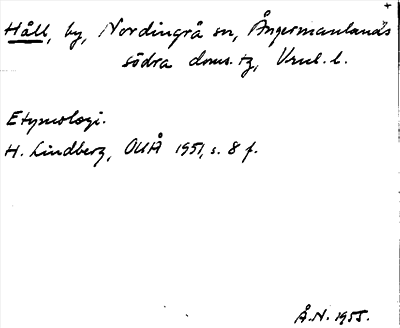 Håll, by, Nordingrå sn, Ångermanlands
södra doms. tg, Vnrl. l.
Etymologi.
H. Lindberg, OUÅ 1951, s. 8 f.
Å.N. 1955.